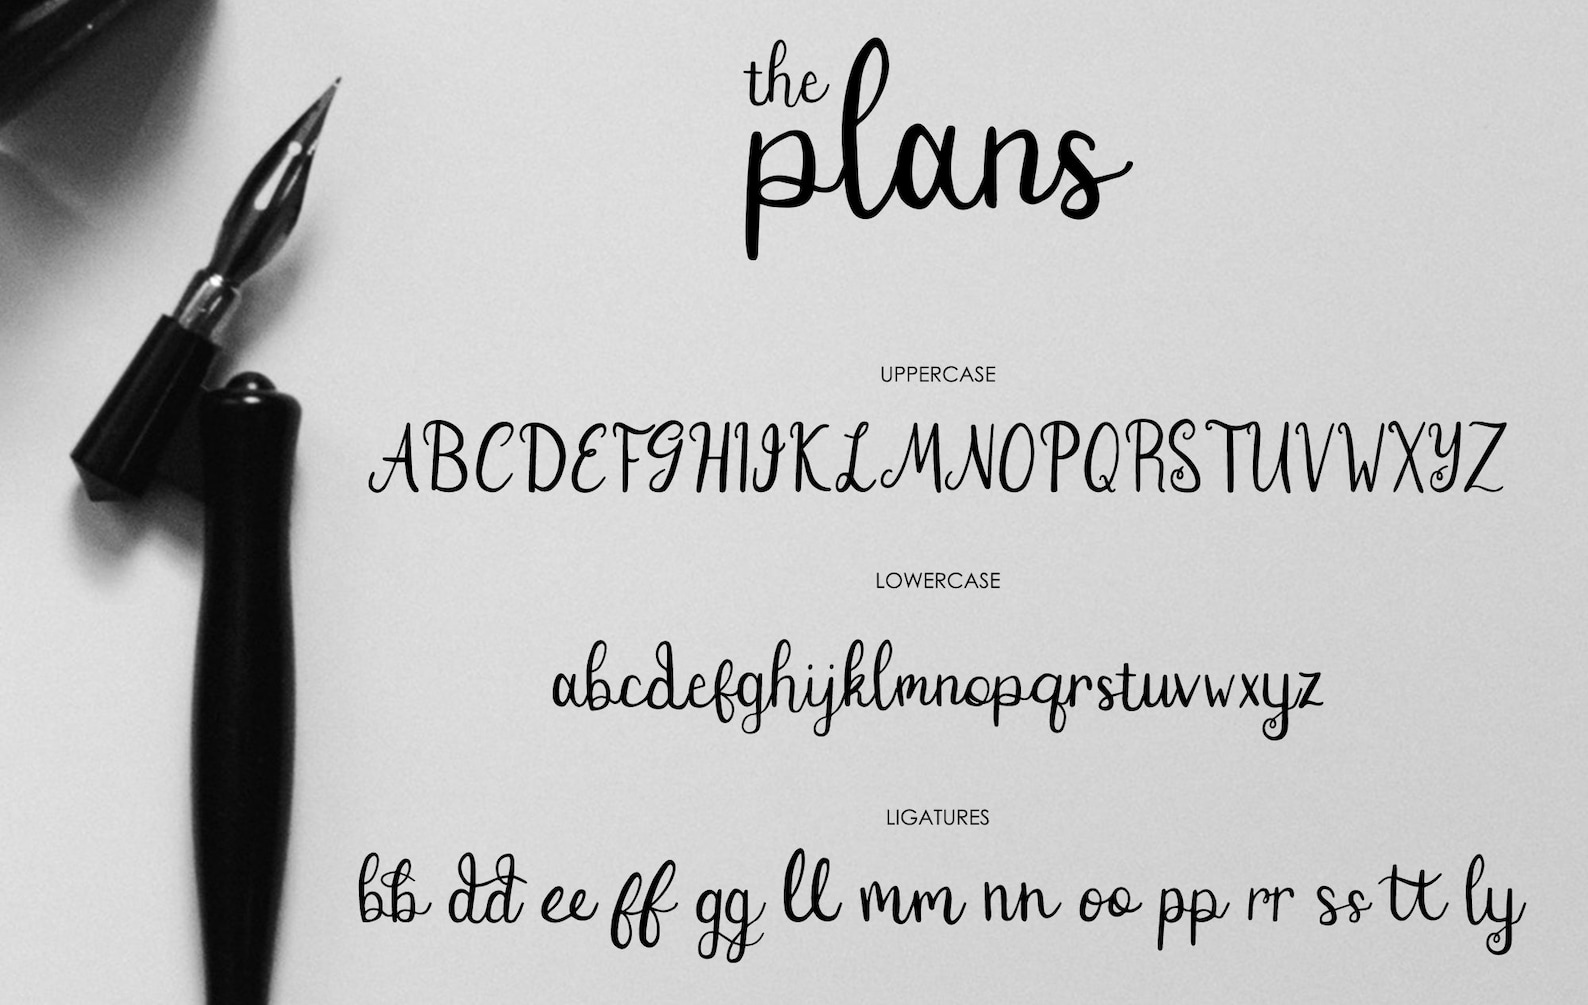 the
plans
UPPERCASE
ABCDEFGHIJKLMNOPQRSTUVWXYZ
LOWERCASE
abcdefghijklmnopqrstuvwxyz
LIGATURES
bb dd ee ff gg ll mm nn oo pp rr ss tt ly